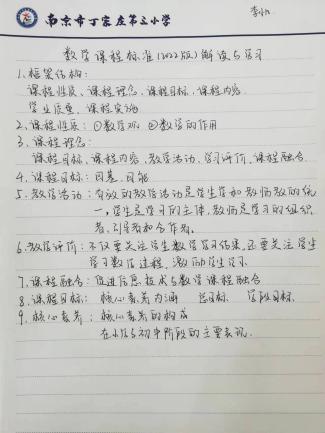 南京市丁家庄第二小学
数学课程标准(2022版)解读与学习
1、框架结构:
课程性质、课程理念、课程目标、课程内容
学业质量、课程实施
2、课程性质: ①数学观 ②数学的作用
3、课程理念:
课程目标、课程内容、教学活动、学习评价、课程融合
4、课程目标: 四基、四能
5、教学活动: 有效的教学活动是学生学和教师教的统
一,学生是学习的主体,教师是学习的组织
者,引导者和合作者。
6、教学评价: 不仅要关注学生数学学习结果,还要关注学生
学习数学过程,激励学生学习
7、课程融合: 促进信息技术与数学课程融合
8、课程目标: 核心素养内涵 总目标 学段目标
9、核心素养: 核心素养的构成
在小学与初中阶段的主要表现